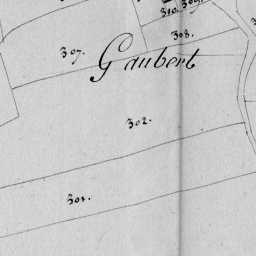 309.
310.
308.
307.
Gaubert
302.
301.